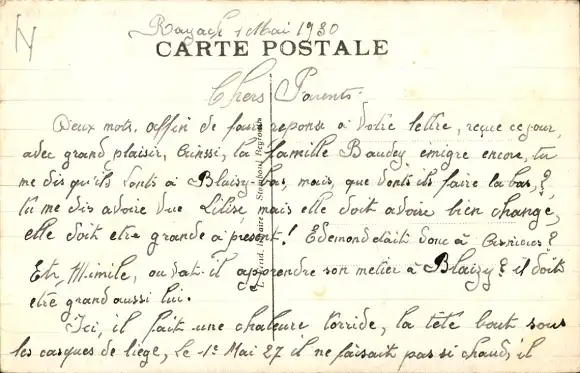 Rayack 1 Mai 1930
CARTE POSTALE
Chers Parents.
Deux mots. affin de faire reponse a Votre lettre, reçue ce jour,
avec grand plaisir, Ainssi, la famille Baudey émigre encore, tu
me dis qu'ils sonts à Blaisy-bas, mais, que vonts ils faire la bas,?
tu me dis avoire vue Lilise, mais elle doit avoire bien changé,
elle doit etre grande a present! Edemond était donc à ?
Et, Mimile, ou va-t-il apprendre son metier à Blaizy? il doit
etre grand aussi lui.
Ici, il fait une chaleure torride, la tête bout sous
les casques de liège, le 1e Mai 27 il ne faisait pas si chaud, il
Stamboul Beyrouth